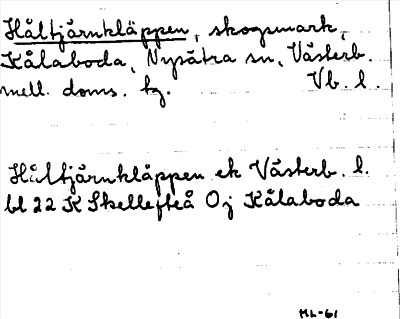 Håltjärnkläppen, skogsmark,
Kålaboda, Nysätra sn, Västerb.
mell. doms. tg. Vb. l.
Håltjärnkläppen ek Västerb. l.
bl 22 K Skellefteå Oj Kålaboda
ML-61